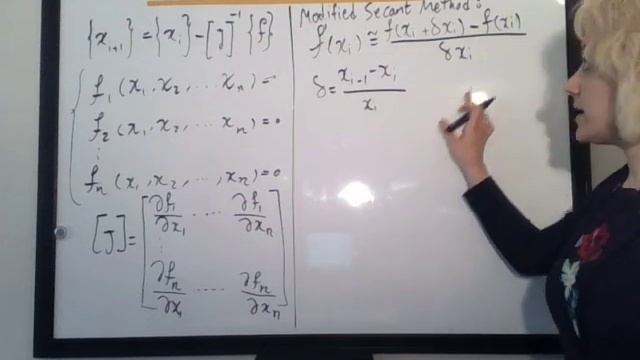 {x_{i+1}} = {x_i} - [J]^{-1} {f}
f_1 (x_1, x_2, ... x_n) = 0
f_2 (x_1, x_2, ... x_n) = 0
⋮
f_n (x_1, x_2, ..., x_n) = 0
[J] = [∂f_1/∂x_1 ..... ∂f_1/∂x_n
⋮
∂f_n/∂x_1 ..... ∂f_n/∂x_n]
Modified Secant Method:
f(x_i) ≅ f(x_i + δx_i) - f(x_i) / δx_i
δ = x_{i-1} - x_i / x_i